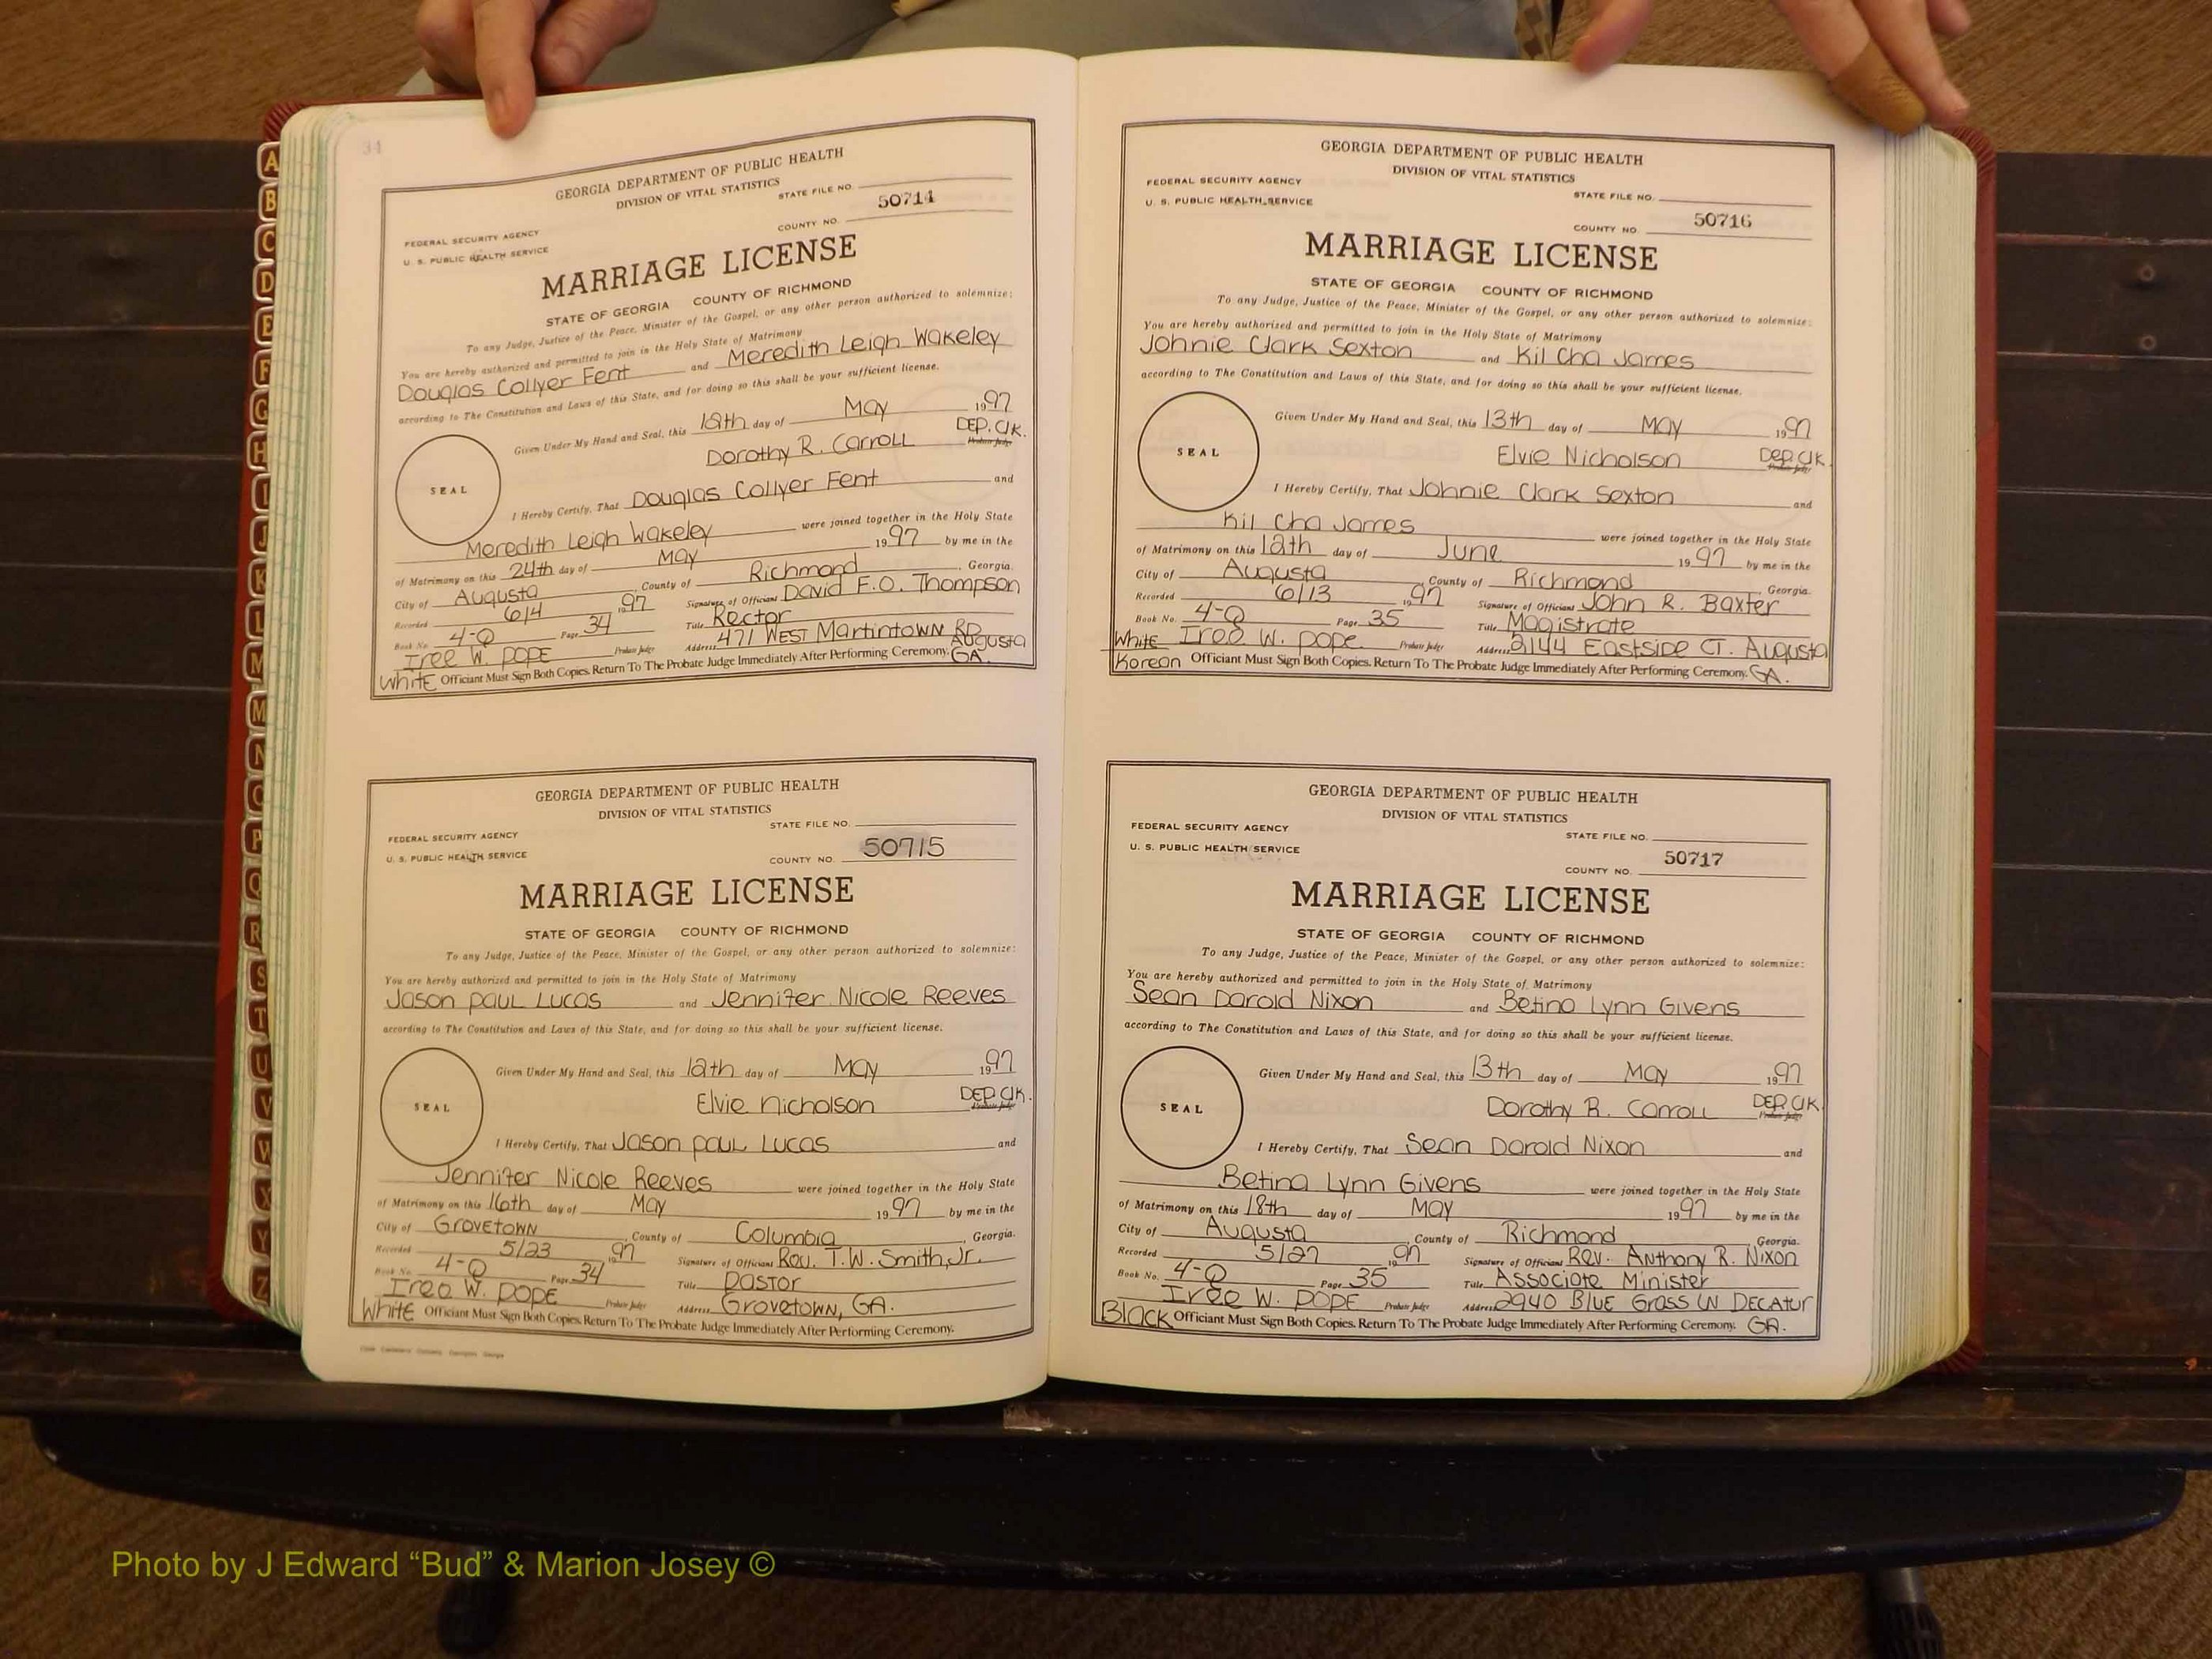 A
B
C
D
E
F
G
H
I
J
K
L
M
M
N
O
P
Q
R
S
T
U
V
W
X
Y
Z
34
GEORGIA DEPARTMENT OF PUBLIC HEALTH
DIVISION OF VITAL STATISTICS
STATE FILE NO.
FEDERAL SECURITY AGENCY
U. S. PUBLIC HEALTH SERVICE
COUNTY NO. 50714
MARRIAGE LICENSE
STATE OF GEORGIA COUNTY OF RICHMOND
To any Judge, Justice of the Peace, Minister of the Gospel, or any other person authorized to solemnize:
You are hereby authorized and permitted to join in the Holy State of Matrimony
Douglas Collyer Fent and Meredith Leigh Wakeley
according to The Constitution and Laws of this State, and for doing so this shall be your sufficient license.
Given Under My Hand and Seal, this 12th day of May 1997
Dorothy R. Carroll DEP. Clk.
Probate Judge
SEAL
I Hereby Certify, That Douglas Collyer Fent and
Meredith Leigh Wakeley were joined together in the Holy State
of Matrimony on this 24th day of May 1997 by me in the
City of Augusta, County of Richmond, Georgia.
Recorded 6/4 1997 Signature of Officiant David F.O. Thompson
Book No. 4-Q Page 34 Title Rector
Iree W. Pope Probate Judge Address 471 West Martintown RD Augusta
White Officiant Must Sign Both Copies. Return To The Probate Judge Immediately After Performing Ceremony. GA.
GEORGIA DEPARTMENT OF PUBLIC HEALTH
DIVISION OF VITAL STATISTICS
STATE FILE NO.
FEDERAL SECURITY AGENCY
U. S. PUBLIC HEALTH SERVICE
COUNTY NO. 50715
MARRIAGE LICENSE
STATE OF GEORGIA COUNTY OF RICHMOND
To any Judge, Justice of the Peace, Minister of the Gospel, or any other person authorized to solemnize:
You are hereby authorized and permitted to join in the Holy State of Matrimony
Jason Paul Lucas and Jennifer Nicole Reeves
according to The Constitution and Laws of this State, and for doing so this shall be your sufficient license.
Given Under My Hand and Seal, this 12th day of May 1997
Elvie Nicholson DEP. Clk.
Probate Judge
SEAL
I Hereby Certify, That Jason Paul Lucas and
Jennifer Nicole Reeves were joined together in the Holy State
of Matrimony on this 16th day of May 1997 by me in the
City of Grovetown, County of Columbia, Georgia.
Recorded 5/23 1997 Signature of Officiant Rev. T.W. Smith, Jr.
Book No. 4-Q Page 34 Title Pastor
Ireo W. Pope Probate Judge Address Grovetown, GA.
White Officiant Must Sign Both Copies. Return To The Probate Judge Immediately After Performing Ceremony.
GEORGIA DEPARTMENT OF PUBLIC HEALTH
DIVISION OF VITAL STATISTICS
FEDERAL SECURITY AGENCY
STATE FILE NO.
U. S. PUBLIC HEALTH SERVICE
COUNTY NO. 50716
MARRIAGE LICENSE
STATE OF GEORGIA COUNTY OF RICHMOND
To any Judge, Justice of the Peace, Minister of the Gospel, or any other person authorized to solemnize:
You are hereby authorized and permitted to join in the Holy State of Matrimony
Johnie Clark Sexton and Kil Cha James
according to The Constitution and Laws of this State, and for doing so this shall be your sufficient license.
Given Under My Hand and Seal, this 13th day of May 1997
Elvie Nicholson DEP. Clk.
Probate Judge
SEAL
I Hereby Certify, That Johnie Clark Sexton and
Kil Cha James were joined together in the Holy State
of Matrimony on this 12th day of June 1997 by me in the
City of Augusta, County of Richmond, Georgia.
Recorded 6/13 1997 Signature of Officiant John R. Baxter
Book No. 4-Q Page 35 Title Magistrate
White Ireo W. Pope Probate Judge Address 2144 Eastside CT. Augusta
Korean Officiant Must Sign Both Copies. Return To The Probate Judge Immediately After Performing Ceremony. GA.
GEORGIA DEPARTMENT OF PUBLIC HEALTH
DIVISION OF VITAL STATISTICS
FEDERAL SECURITY AGENCY
STATE FILE NO.
U. S. PUBLIC HEALTH SERVICE
COUNTY NO. 50717
MARRIAGE LICENSE
STATE OF GEORGIA COUNTY OF RICHMOND
To any Judge, Justice of the Peace, Minister of the Gospel, or any other person authorized to solemnize:
You are hereby authorized and permitted to join in the Holy State of Matrimony
Sean Darold Nixon and Betina Lynn Givens
according to The Constitution and Laws of this State, and for doing so this shall be your sufficient license.
Given Under My Hand and Seal, this 13th day of May 1997
Dorothy R. Carroll DEP. Clk.
Probate Judge
SEAL
I Hereby Certify, That Sean Darold Nixon and
Betina Lynn Givens were joined together in the Holy State
of Matrimony on this 18th day of May 1997 by me in the
City of Augusta, County of Richmond, Georgia.
Recorded 5/27 1997 Signature of Officiant Rev. Anthony R. Nixon
Book No. 4-Q Page 35 Title Associate Minister
Iree W. Pope Probate Judge Address 2940 Blue Grass LN Decatur
Black Officiant Must Sign Both Copies. Return To The Probate Judge Immediately After Performing Ceremony. GA.
Photo by J Edward “Bud” & Marion Josey ©